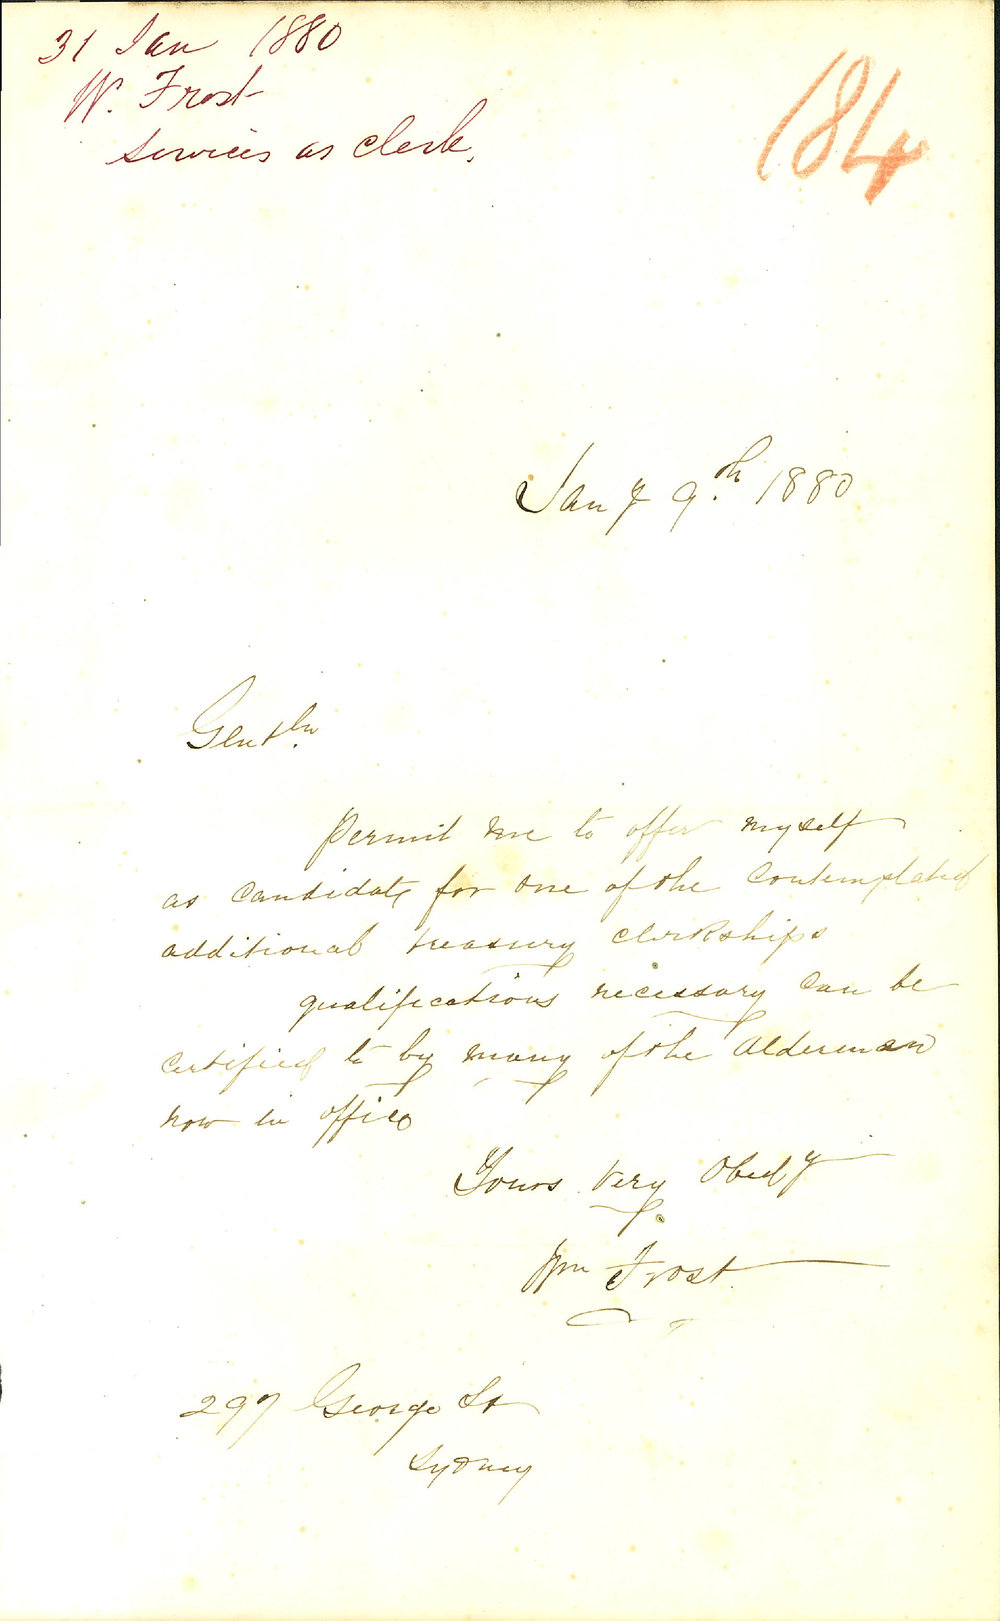 31 Jan 1880
W. Frost
Services as Clerk.
184
Jany 9.th 1880
Gentln.
Permit me to offer myself
as Candidate for one of the Contemplated
additional treasury Clerkships
qualifications necessary Can be
Certified to by many of the Alderman
now in office
Yours Very Obedy
Wm Frost.
297 George St
Sydney